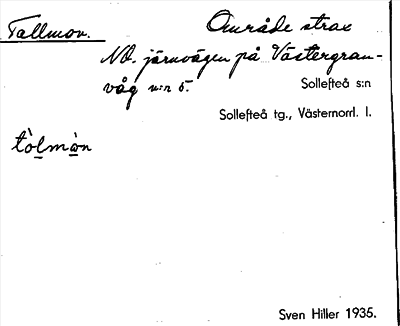 Tallmon. Område strax
NO. järnvägen på Västergran-
våg n:r 5. Sollefteå s:n
Sollefteå tg., Västernorrl. l.
tòlmòn
Sven Hiller 1935.